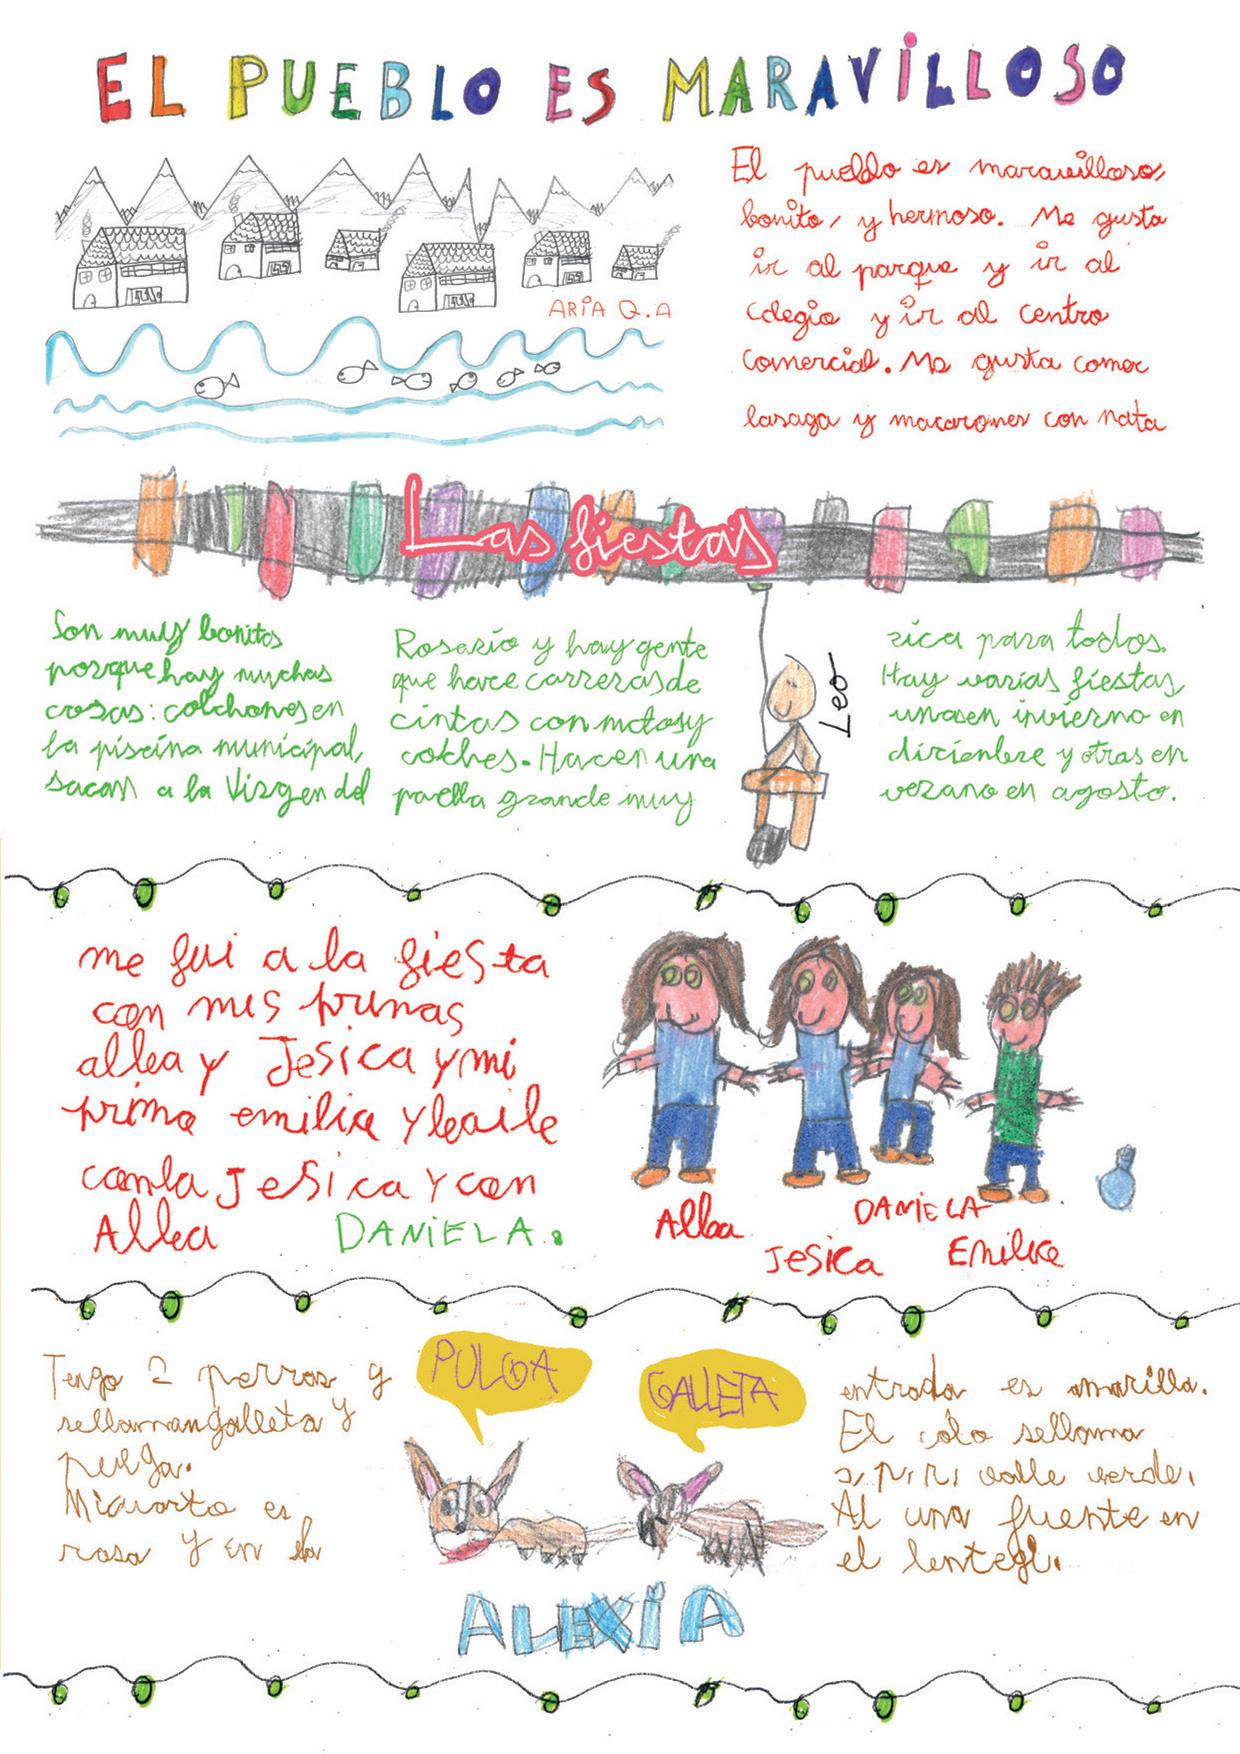 EL PUEBLO ES MARAVILLOSO
ARIA Q.A
El pueblo es maravilloso,
bonito, y hermoso. Me gusta
ir al parque y ir al
colegio y ir al centro
comercial. Me gusta comer
lasaga y macarones con nata
Las fiestas
Son muy bonitas
porque hay muchas
cosas: colchones en
la piscina municipal,
sacan a la Virgen del
Rosario y hay gente
que hace carreras de
cintas con motos y
cohches. Hacen una
paella grande muy
Leo
rica para todos.
Hay varias fiestas,
unas en invierno en
diciembre y otras en
verano en agosto.
me fui a la fiesta
con mis primas
alba y Jesica y mi
prima emilia y baile
con la Jesica y con
Alba
DANIELA.
Alba
Jesica
DANIELA
Emilia
Tengo 2 perros y
se llaman galleta y
pulga.
Mi cuarto es
rosa y en la
PULGA
GALLETA
entrada es amarilla.
El cole se llama
valle verde.
Al una fuente en
el lentegi.
ALEXIA